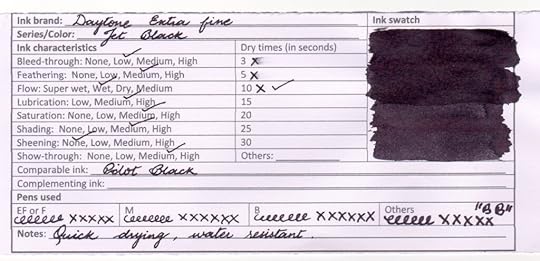 Ink brand: Daytone Extra fine
Ink swatch
Series/Color: Jet Black
Ink characteristics
Dry times (in seconds)
Bleed-through: None, Low, Medium, High
3 x
Feathering: None, Low, Medium, High
5 x
Flow: Super wet, Wet, Dry, Medium
10 x ✓
Lubrication: Low, Medium, High
15
Saturation: None, Low, Medium, High
20
Shading: None, Low, Medium, High
25
Sheening: None, Low, Medium, High
30
Show-through: None, Low, Medium, High
Others:
Comparable ink: Pilot Black
Complementing ink:
Pens used
EF or F
M
B
Others "BB"
eeeeeee xxxxxx
eeeeeee xxxxxx
eeeeeee xxxxxx
eeeeee xxxxx
Notes: Quick drying, water resistant.